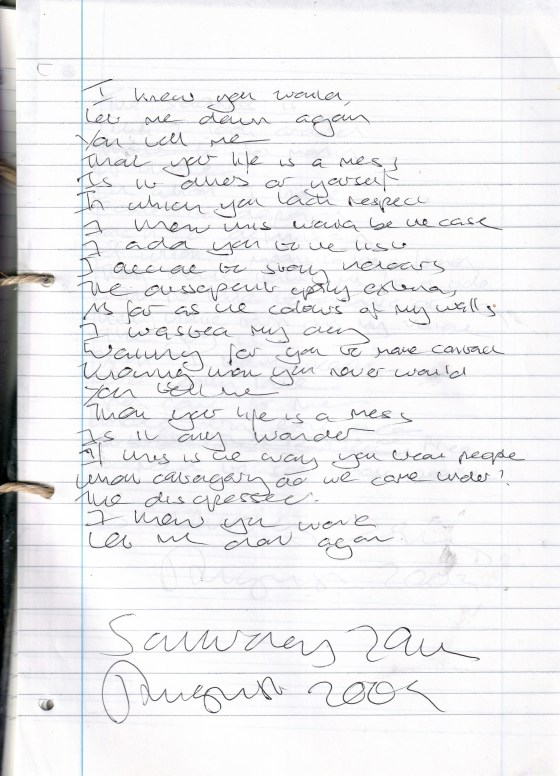 I knew you would,
Let me down again
You tell me
That your life is a mess
Is it others or yourself
In which you lack respect
I knew this would be the case
I add you to the list
I decide to stay indoors
The dissapointment only extends,
As far as the colours of my walls
I wasted my day
Waiting for you to make contact
Knowing that you never would
You tell me
That your life is a mess
Is it any wonder
If this is the way you treat people
What catagory do we come under?
The dispossessed.
I knew you would
Let me down again.
Saturday
August